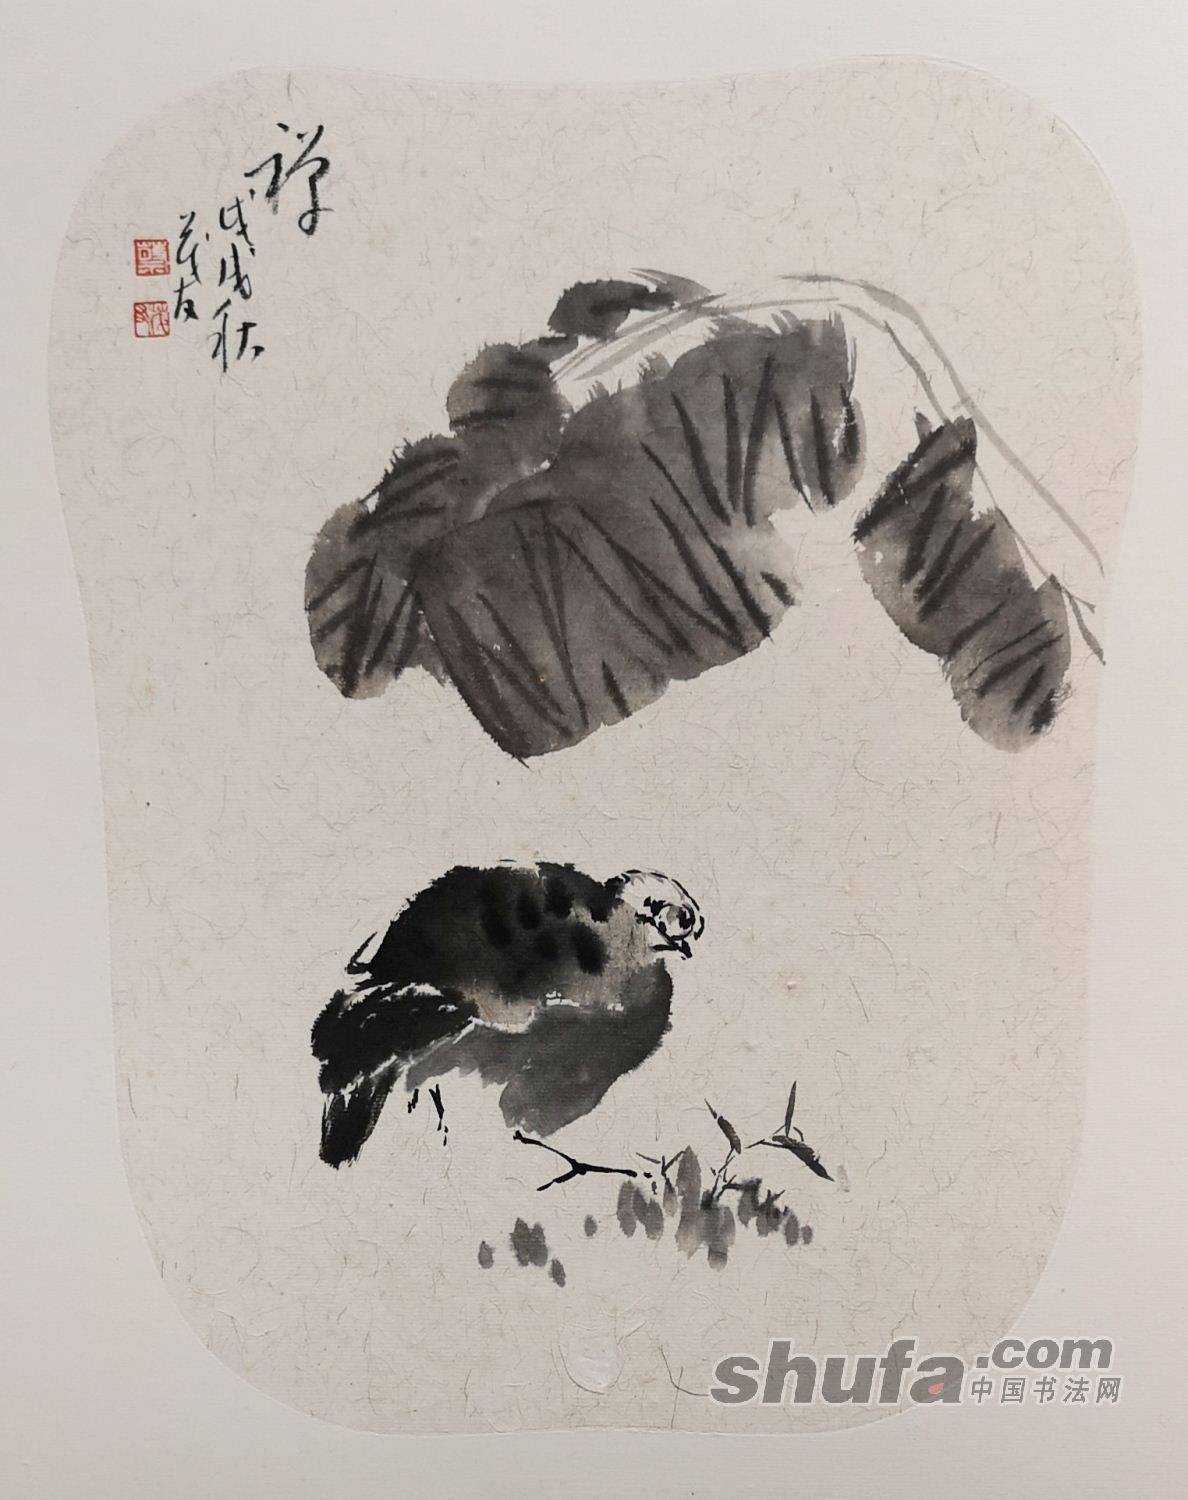 禅
戊戌秋
茂友
shufa.com
中国书法网